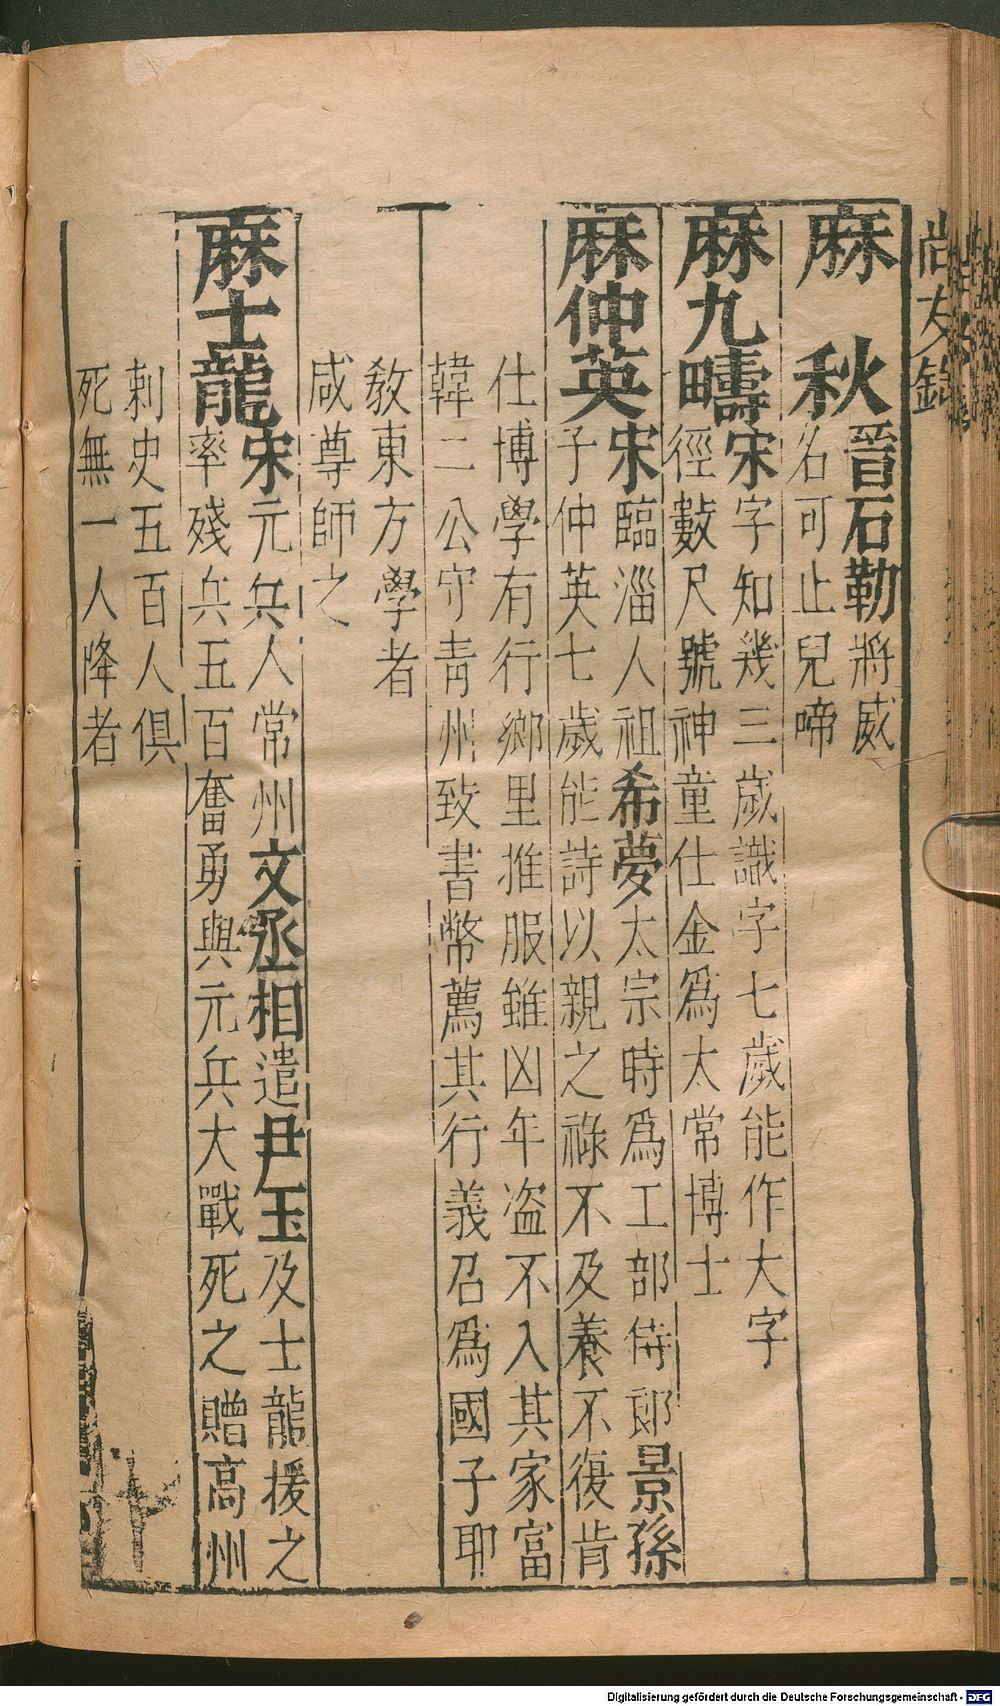 尚友錄
麻秋
晉石勒將威
名可止兒啼
麻九疇
宋字知幾三歲識字七歲能作大字
徑數尺號神童仕金爲太常博士
麻仲英
宋臨淄人祖希夢太宗時爲工部侍郎景孫
子仲英七歲能詩以親之祿不及養不復肯
仕博學有行鄉里推服雖凶年盗不入其家富
韓二公守靑州致書幣薦其行義召爲國子耶
教東方學者
咸尊師之
麻士龍
宋元兵人常州文丞相遣尹玉及士龍援之
率殘兵五百奮勇與元兵大戰死之贈高州
剌史五百人俱
死無一人降者
Digitalisierung gefördert durch die Deutsche Forschungsgemeinschaft - DFG